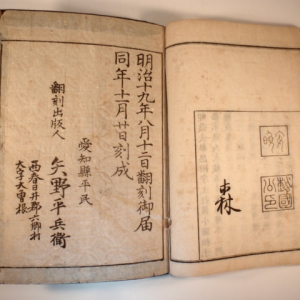 明治十九年八月十二日翻刻御届
同年十一月廿日刻成
愛知縣平民
翻刻出版人 矢野平兵衛
西春日井郡六郷村
大字大曽根